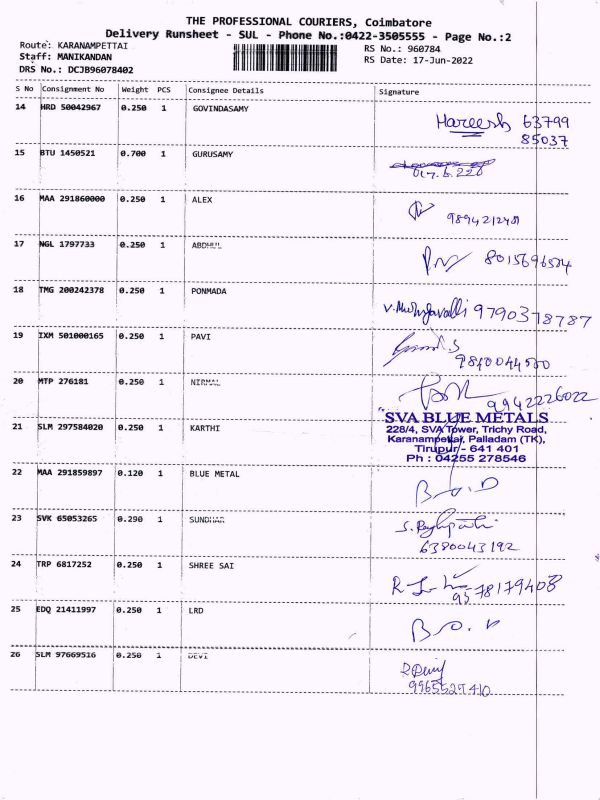 THE PROFESSIONAL COURIERS, Coimbatore
Delivery Runsheet - SUL - Phone No.:0422-3505555 - Page No.:2
Route: KARANAMPETTAI RS No.: 960784
Staff: MANIKANDAN RS Date: 17-Jun-2022
DRS No.: DCJB96078402
S No Consignment No Weight PCS Consignee Details Signature
14 HRD 50042967 0.250 1 GOVINDASAMY
Hareesh 63799
85037
15 BTU 1450521 0.700 1 GURUSAMY
16 MAA 291860000 0.250 1 ALEX
17 NGL 1797733 0.250 1 ABDHUL
8015696504
18 TMG 200242378 0.250 1 PONMADA
9790378787
19 IXM 501000165 0.250 1 PAVI
9840044500
20 MTP 276181 0.250 1 NIRMAL
9942226022
SVA BLUE METALS
21 SLM 297584020 0.250 1 KARTHI
228/4, SVA Tower, Trichy Road,
Karanampettai, Palladam (TK),
Tirupur - 641 401
Ph : 04255 278546
22 MAA 291859897 0.120 1 BLUE METAL
B.O.D
23 SVK 65053265 0.290 1 SUNDHAR
6380043192
24 TRP 6817252 0.250 1 SHREE SAI
9578179408
25 EDQ 21411997 0.250 1 LRD
26 SLM 97669516 0.250 1 DEVI
R.Devi
9965527410